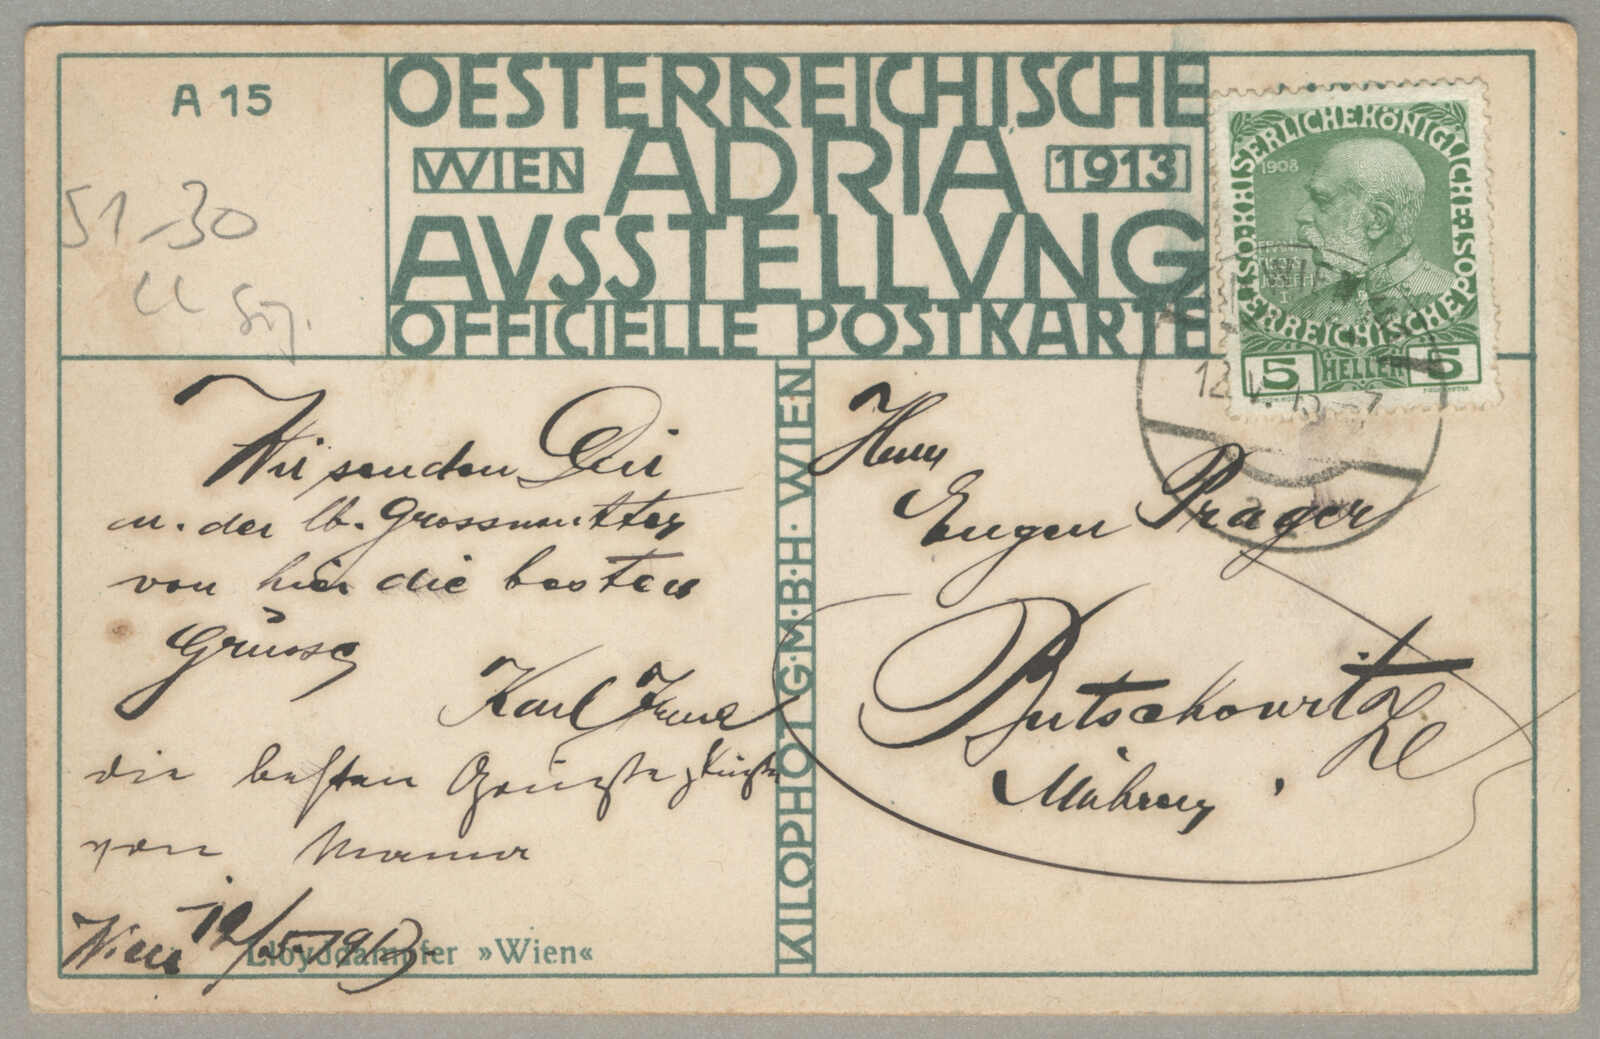 A 15
OESTERREICHISCHE
WIEN ADRIA 1913
AVSSTELLVNG
OFFICIELLE POSTKARTE
51-30
KAISERLICHE KÖNIGLICHE
ÖSTERREICHISCHE POST
1908
FRANZ
JOSEPH
I
5 HELLER 5
WIEN
12.V.13
Wir senden Dir
u. der lb. Grossmutter
von hier die besten
Grüsse
Karl Irene
die besten Grüsse Küsse
von Mama
Wien 12/5 1913
Lloyddampfer »Wien«
KILOPHOT G·M·B·H· WIEN
Herrn
Eugen Prager
Butschowitz
Mähren